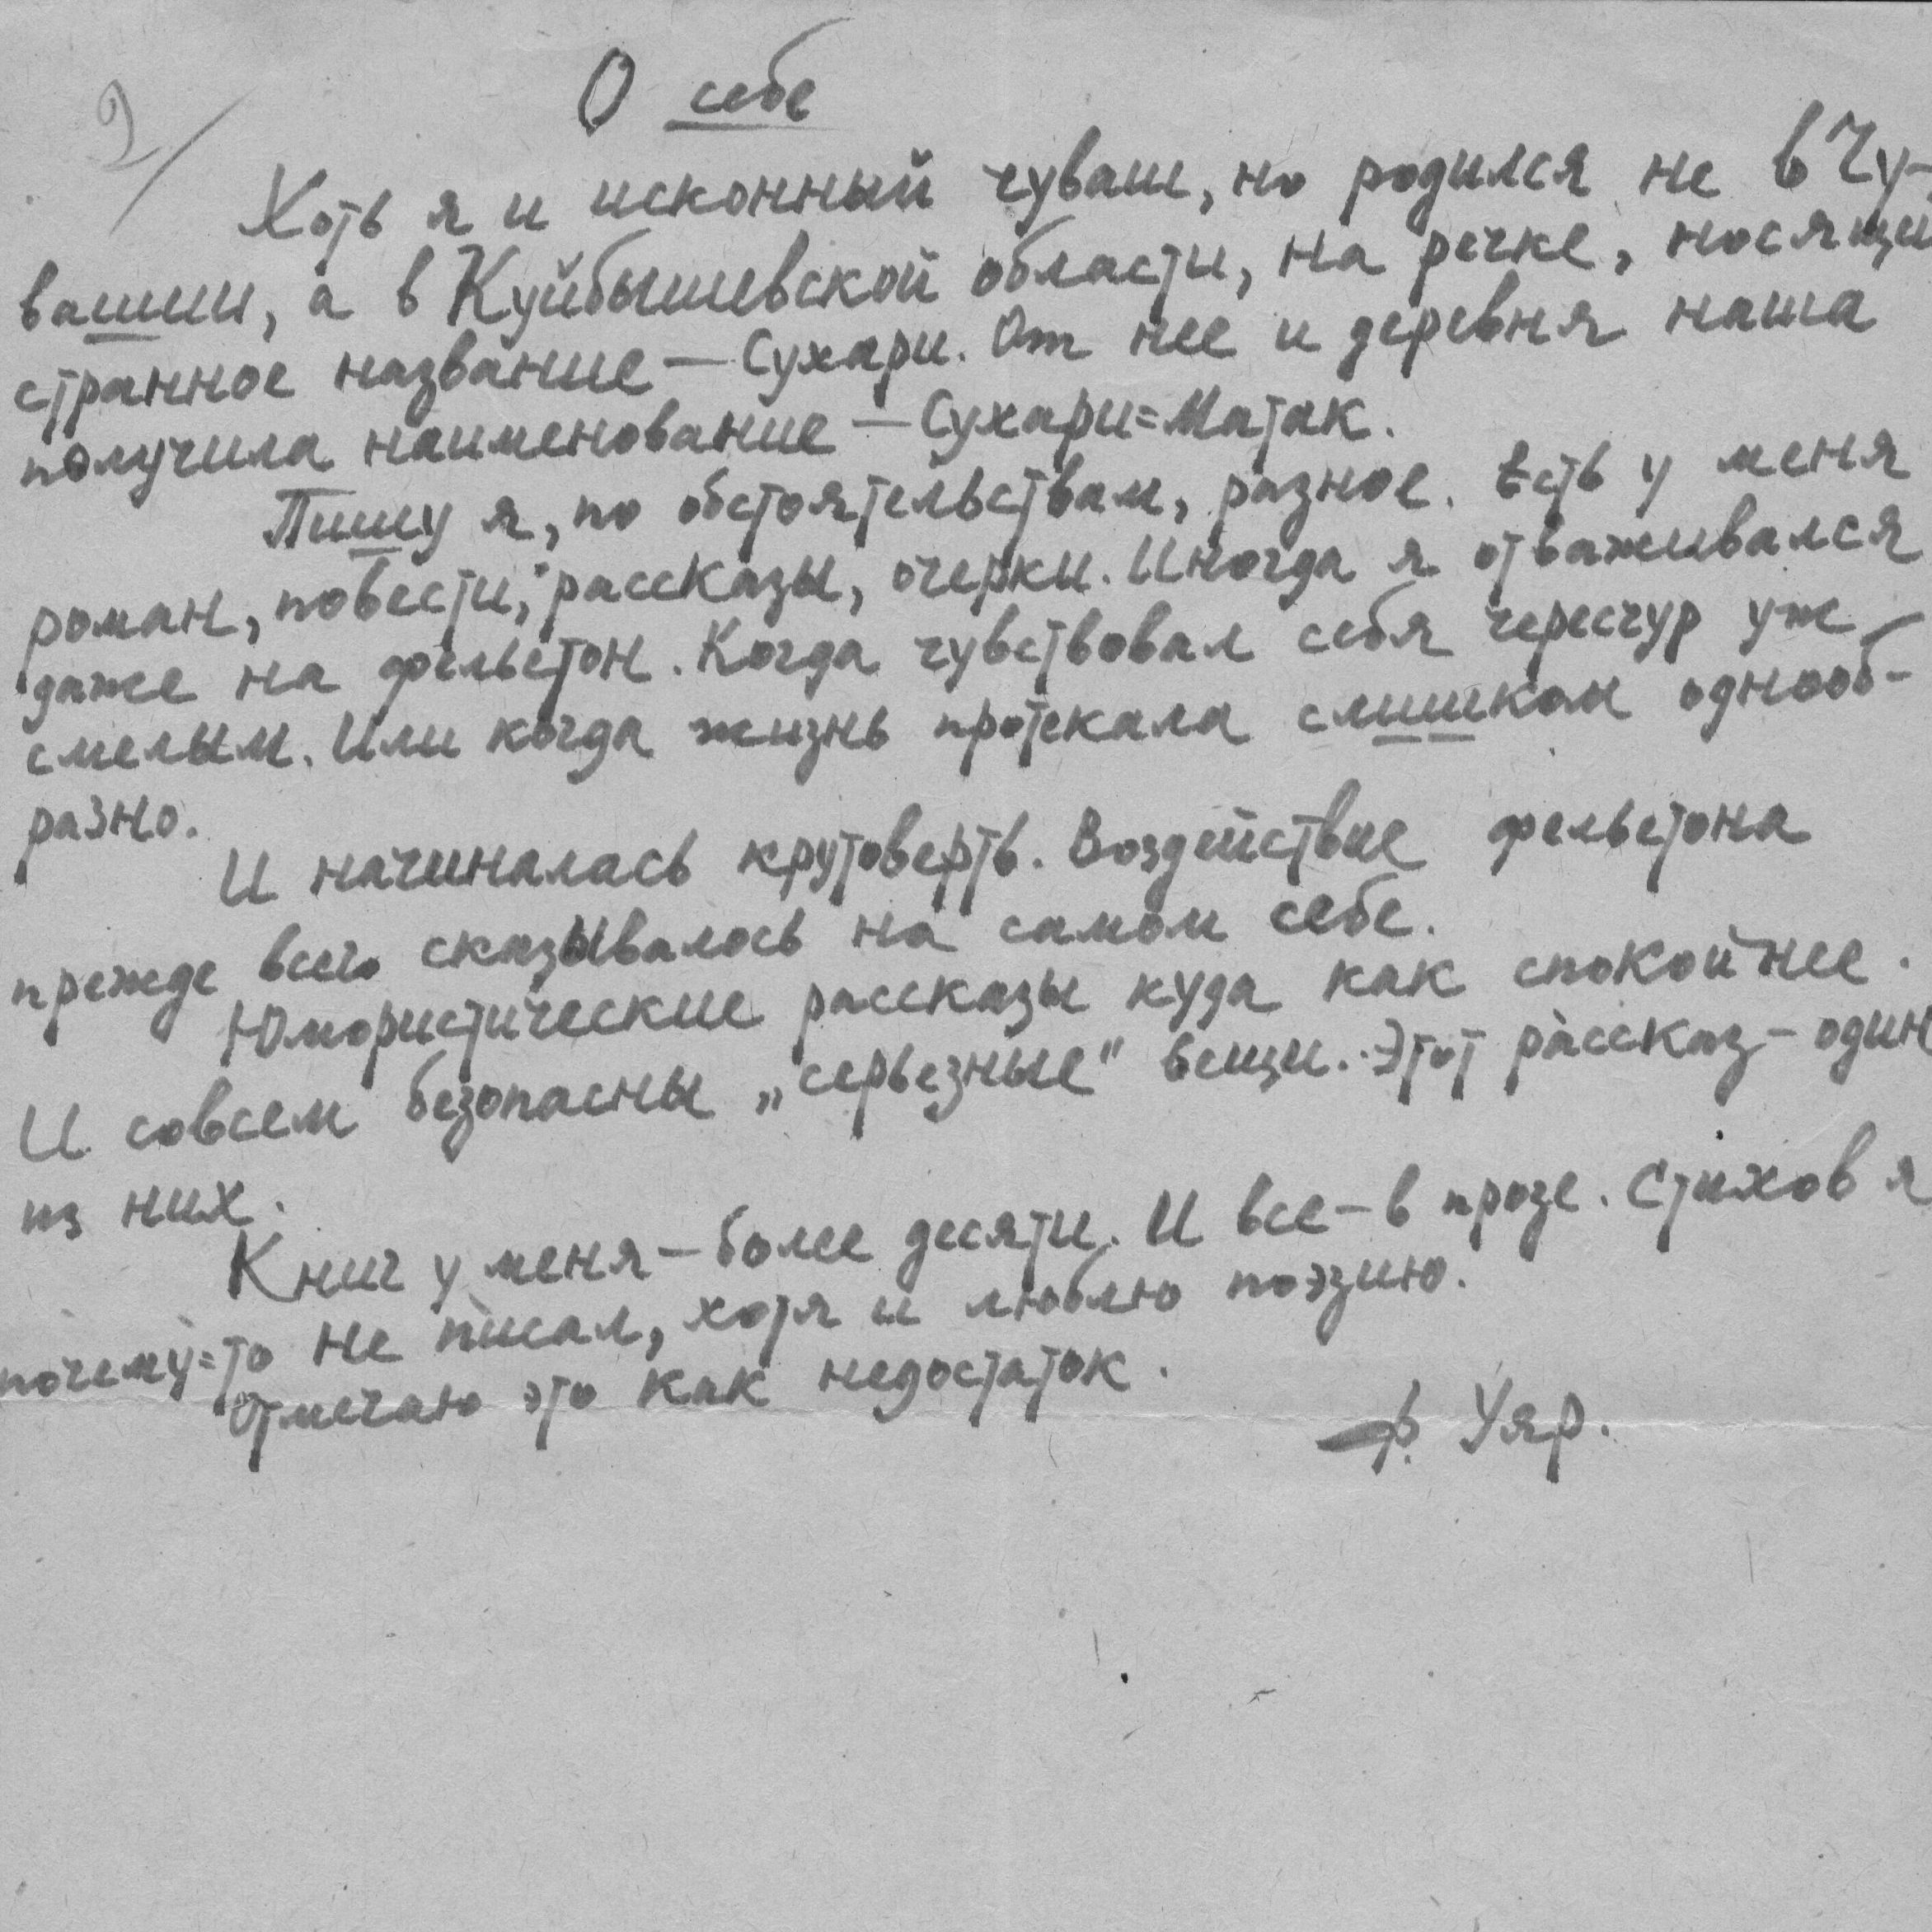 2/
О себе
Хоть я и исконный чуваш, но родился не в Чу-
вашии, а в Куйбышевской области, на речке, носящи
странное название — Сухари. От нее и деревня наша
получила наименование — Сухари=Матак.
Пишу я, по обстоятельствам, разное. Есть у меня
роман, повести, рассказы, очерки. Иногда я отваживался
даже на фельетон. Когда чувствовал себя чересчур уж
смелым. Или когда жизнь протекала слишком однооб-
разно.
И начиналась крутоверть. Воздействие фельетона
прежде всего сказывалось на самом себе.
Юмористические рассказы куда как спокойнее.
И совсем безопасны „серьезные" вещи. Этот рассказ – один
из них.
Книг у меня – более десяти. И все – в прозе. Стихов я
почему=то не писал, хотя и люблю поэзию.
Отмечаю это как недостаток.
Ф. Уяр.